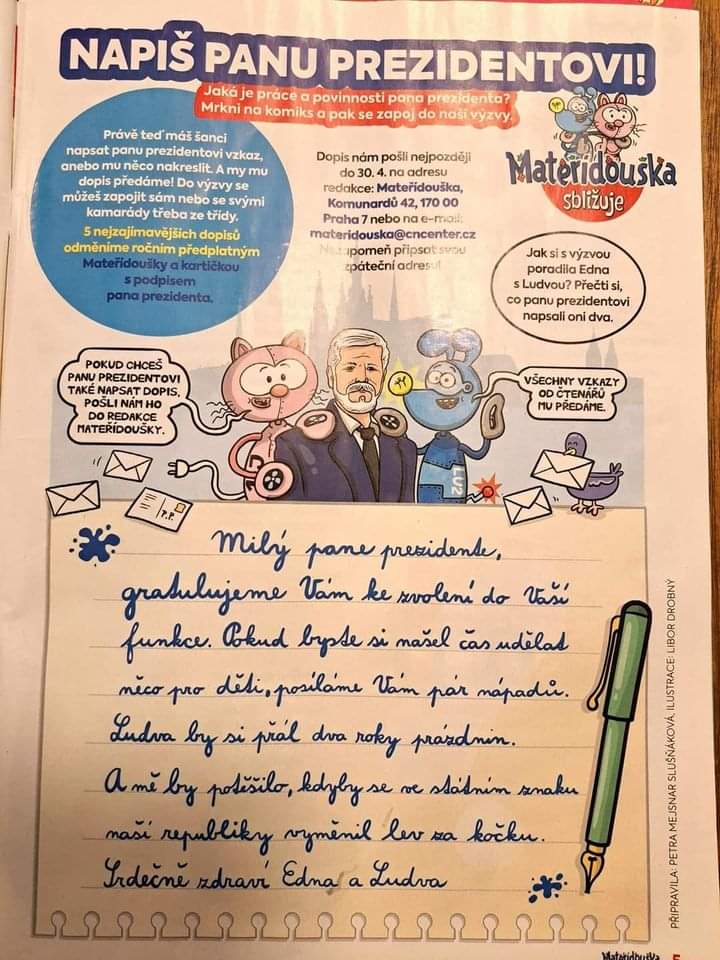 NAPIŠ PANU PREZIDENTOVI!
Jaká je práce a povinnosti pana prezidenta?
Mrkni na komiks a pak se zapoj do naší výzvy.
Právě teď máš šanci
napsat panu prezidentovi vzkaz,
anebo mu něco nakreslit. A my mu
dopis předáme! Do výzvy se
můžeš zapojit sám nebo se svými
kamarády třeba ze třídy.
5 nejzajímavějších dopisů
odměníme ročním předplatným
Mateřídoušky a kartičkou
s podpisem
pana prezidenta.
Dopis nám pošli nejpozději
do 30. 4. na adresu
redakce: Mateřídouška,
Komunardů 42, 170 00
Praha 7 nebo na e-mail:
materidouska@cncenter.cz
Nezapomeň připsat svou
zpáteční adresu!
Mateřídouška
sbližuje
Jak si s výzvou
poradila Edna
s Ludvou? Přečti si,
co panu prezidentovi
napsali oni dva.
POKUD CHCEŠ
PANU PREZIDENTOVI
TAKÉ NAPSAT DOPIS,
POŠLI NÁM HO
DO REDAKCE
MATEŘÍDOUŠKY.
VŠECHNY VZKAZY
OD ČTENÁŘŮ
MU PŘEDÁME.
LU2
P.P.
Milý pane prezidente,
gratulujeme Vám ke zvolení do Vaší
funkce. Pokud byste si našel čas udělat
něco pro děti, posíláme Vám pár nápadů.
Ludva by si přál dva roky prázdnin.
A mě by potěšilo, kdyby se ve státním znaku
naší republiky vyměnil lev za kočku.
Srdečně zdraví Edna a Ludva
PŘIPRAVILA: PETRA MEJSNAR SLUŠŇÁKOVÁ, ILUSTRACE: LIBOR DROBNÝ
Mateřídouška 5